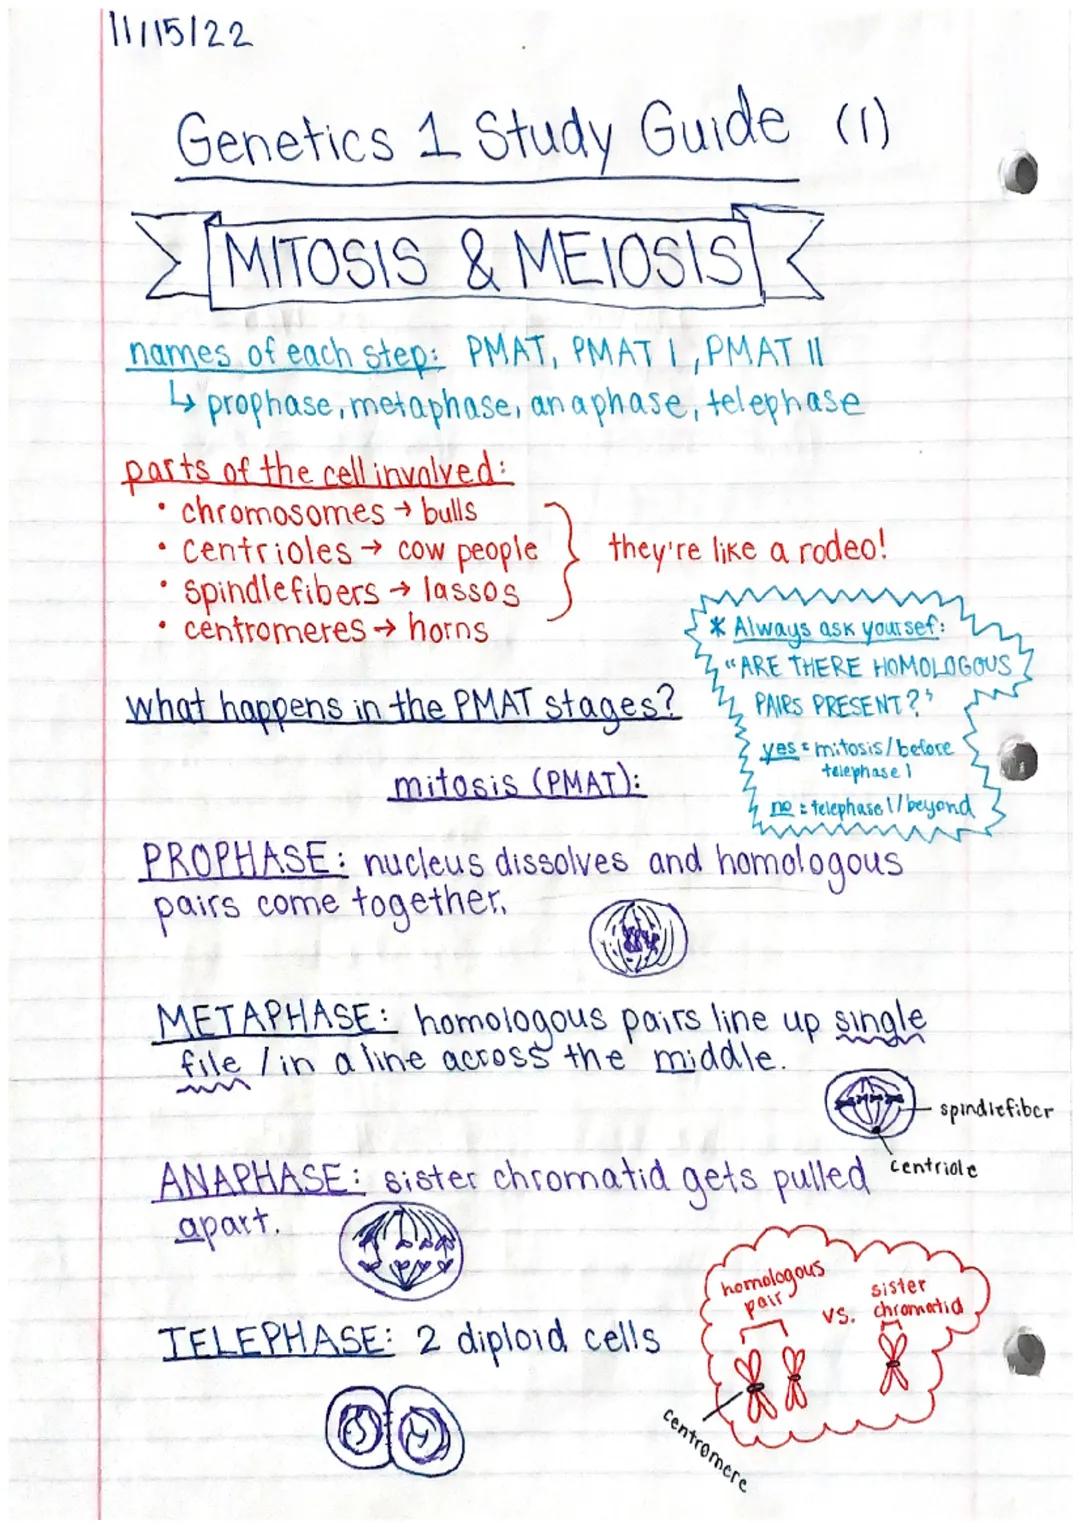 11/15/22
Genetics 1 Study Guide (1)
MITOSIS & MEIOSIS
names of each step: PMAT, PMAT I, PMAT II
↳ prophase, metaphase, anaphase, telephase
parts of the cell involved:
• chromosomes → bulls
• centrioles → cow people
• spindlefibers → lassos
• centromeres → horns
they're like a rodeo!
* Always ask yoursef:
"ARE THERE HOMOLOGOUS
PAIRS PRESENT?"
yes = mitosis/before
telephase 1
no = telephase 1/beyond
what happens in the PMAT stages?
mitosis (PMAT):
PROPHASE: nucleus dissolves and homologous
pairs come together.
METAPHASE: homologous pairs line up single
file / in a line across the middle.
spindlefiber
centriole
ANAPHASE: sister chromatid gets pulled
apart.
homologous
pair
vs.
sister
chromatid
centromere
TELEPHASE: 2 diploid cells